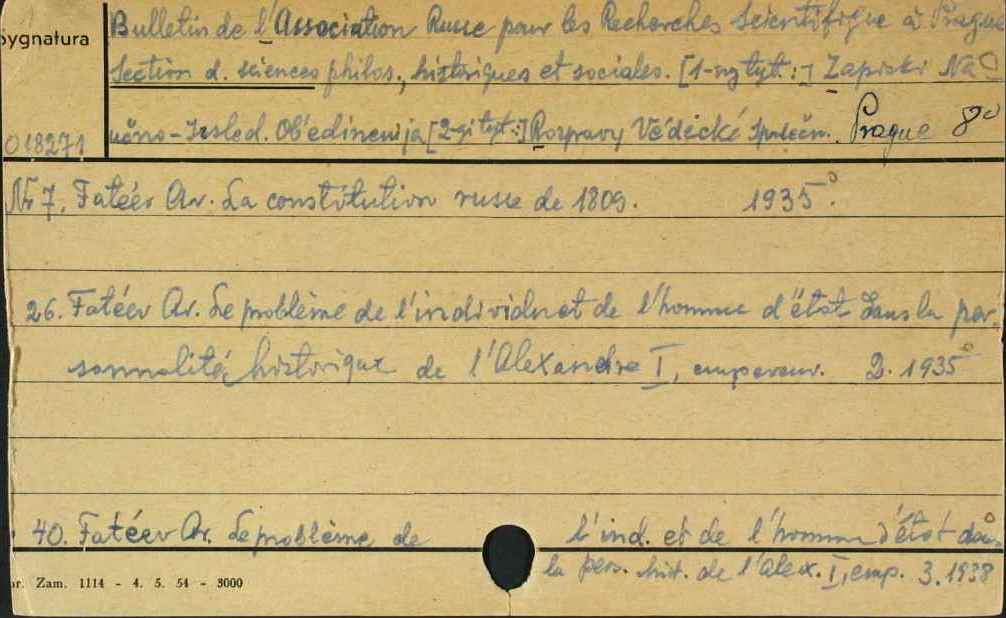 Bulletin de l'Association Russe pour les Recherches Scientifique à Prague
Sygnatura
Section d. sciences philos., historiques et sociales. [1-szy tyt.:] Zapiski Na
018271
učno-Issled. Ob'edinenija [2-gi tyt.:] Rozpravy Vědecké Společn. Prague 8°
Nr 7. Fatéev Ar. La constitution russe de 1809. 1935°.
26. Fatéev Ar. Le problème de l'individu et de l'homme d'état dans la per
sonnalité historique de l'Alexandre I, empereur. 2. 1935°
40. Fatéev Ar. Le problème de l'ind. et de l'homme d'état dans
la pers. hist. de l'Alex. I, emp. 3. 1938
r. Zam. 1114 - 4. 5. 54 - 3000